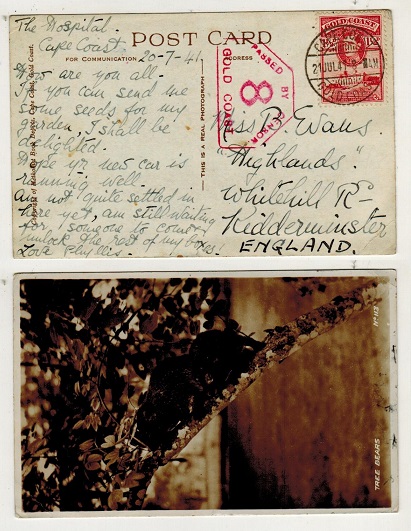 The Hospital.
Cape Coast.
20-7-41.
POST CARD
FOR COMMUNICATION
ADDRESS
How are you all.
If you can send me
some seeds for my
garden, I shall be
delighted.
Hope yr new car is
running well.
Am not quite settled in
here yet, am still waiting
for someone to come &
unlock the rest of my boxes!
Love Phyllis.
THIS IS A REAL PHOTOGRAPH
PASSED BY
CENSOR
8
GOLD COAST
GOLD COAST
21 JUL 41
Miss P. Evans
"Highlands."
Whitehill Rd
Kidderminster
ENGLAND.
TREE BEARS